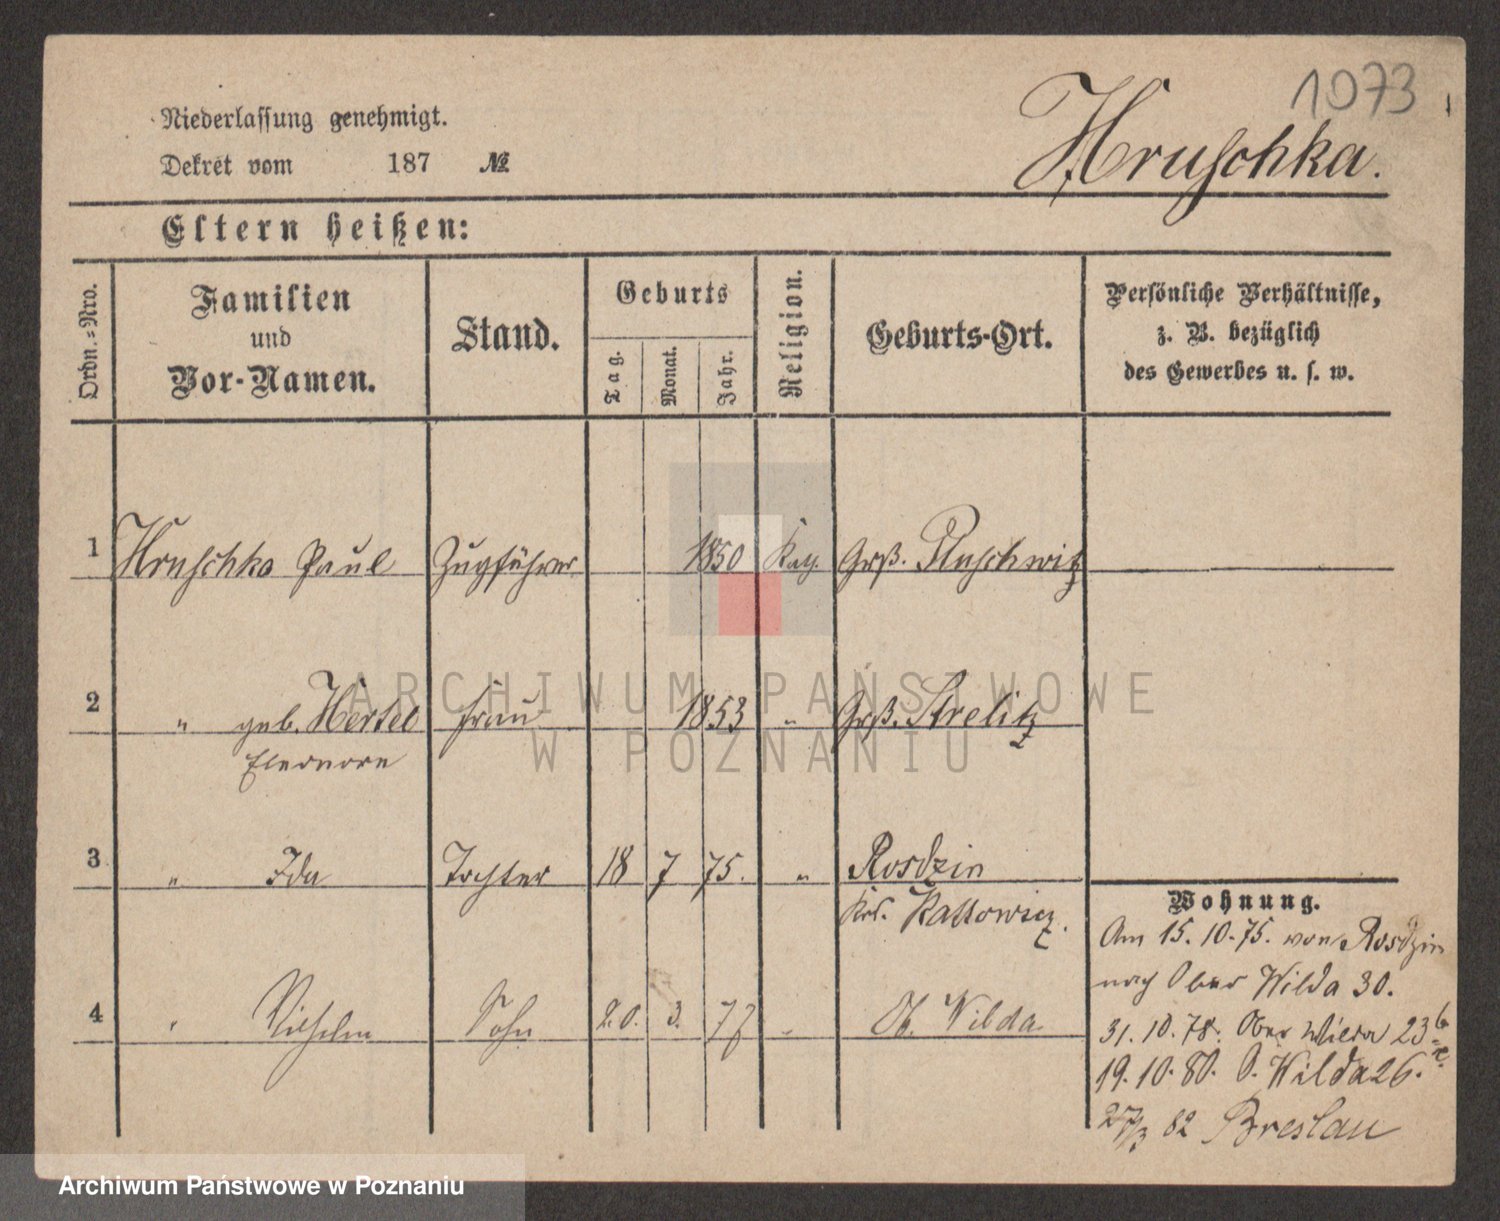 1073
Niederlassung genehmigt.
Hruschka.
Dekret vom 187 №
Eltern heißen:
Ordn.-Nro.
Familien
und
Vor-Namen.
Stand.
Geburts
Tag.
Monat.
Jahr.
Religion.
Geburts-Ort.
Persönliche Verhältnisse,
z. B. bezüglich
des Gewerbes u. s. w.
1 Hruschka Paul Zugführer 1850 Grß. Pluschwitz
2 " geb. Hertel Frau 1853 " Grß. Strelitz
Eleonore
3 " Ida Tochter 18 7 75. " Rosdzin
Krs. Kattowicz.
4 " Wilhelm Sohn 20. 3. 77 " Ob. Wilda
Wohnung.
Am 15. 10. 75. von Rosdzin
nach Ober Wilda 30.
31. 10. 78. Ober Wilda 23
19. 10. 80. O. Wilda 26.
27/3 82 Breslau
ARCHIWUM PAŃSTWOWE
W POZNANIU
Archiwum Państwowe w Poznaniu